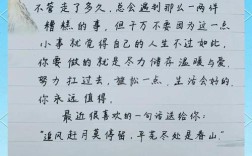 不管走了多久，总会遇到那么一两件
糟糕的事，但千万不要因为这一点
小事就觉得自己的人生不过如此，
你要做的就是尽力储存温暖与爱，
努力扛过去，放松一点，生活会好的，
你永远值得。
最近很喜欢的一句话送给你：
“追风赶月莫停留，平芜尽处是春山”